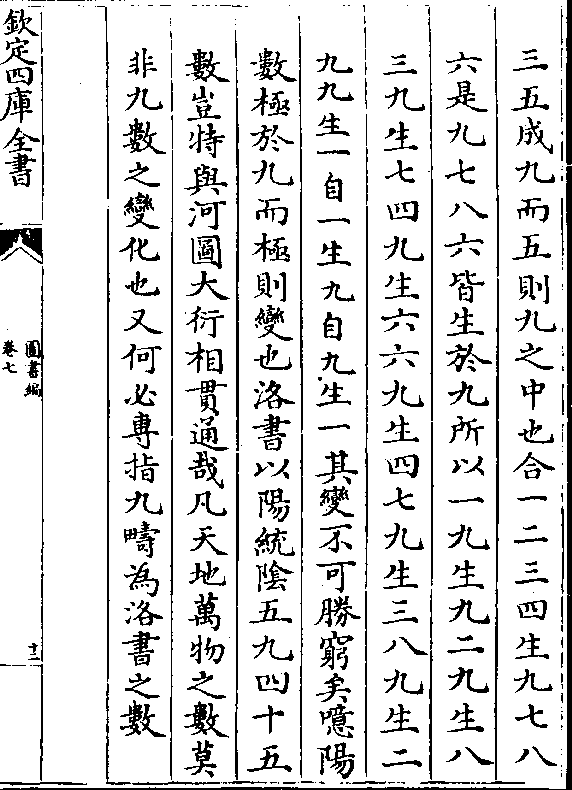 三五成九而五則九之中也合一二三四生九七八
六是九七八六皆生於九所以一九生九二九生八
三九生七四九生六六九生四七九生三八九生二
九九生一自一生九自九生一其變不可勝窮矣噫陽
數極於九而極則變也洛書以陽統陰五九四十五
數豈特與河圖大衍相貫通哉凡天地萬物之數莫
非九數之變化也又何必專指九疇為洛書之數
欽定四庫全書
圖書編
卷七
十二